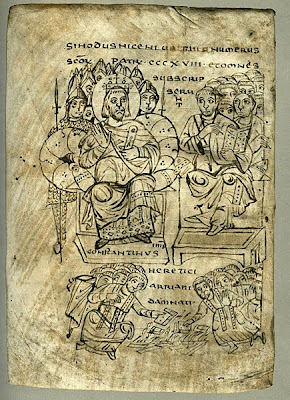 SINODUS NICENI UBI NUMERUS
SCOR PATR CCCXVIII ET OMNES
SUBSCRIP
SERU
NT
CONSTANTINUS
HERETICI
ARRIANI
DAMNATI